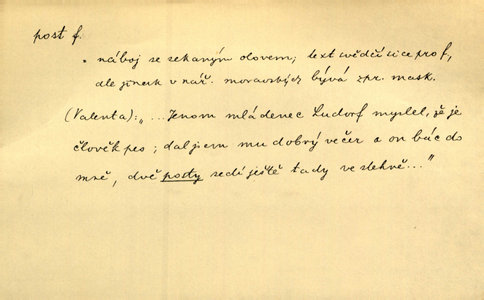 post f.
. náboj se sekaným olovem; text svědčí sice pro f,
dle jinak v nář. moravských bývá zpr. mask.
(Valenta): „...Jenom mládenec Ludorf myslel, že je
člověk pes; dal jsem mu dobrý večer a on bác do
mně, dvě posty sedí ještě tady ve stehně..."